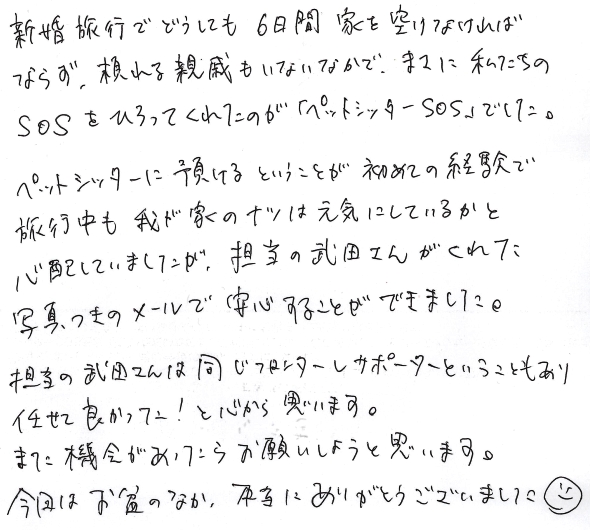 新婚旅行でどうしても6日間家を空けなければ
ならず、頼れる親戚もいないなかで、まさに私たちの
SOSをひろってくれたのが「ペットシッターSOS」でした。
ペットシッターに預けるということが初めての経験で
旅行中も我が家のナツは元気にしているかと
心配していましたが、担当の武田さんがくれた
写真つきのメールで安心することができました。
担当の武田さんは同じフロンターレサポーターということもあり
任せて良かった!と心から思います。
また機会があったらお願いしようと思います。
今回はお盆のなか、本当にありがとうございました